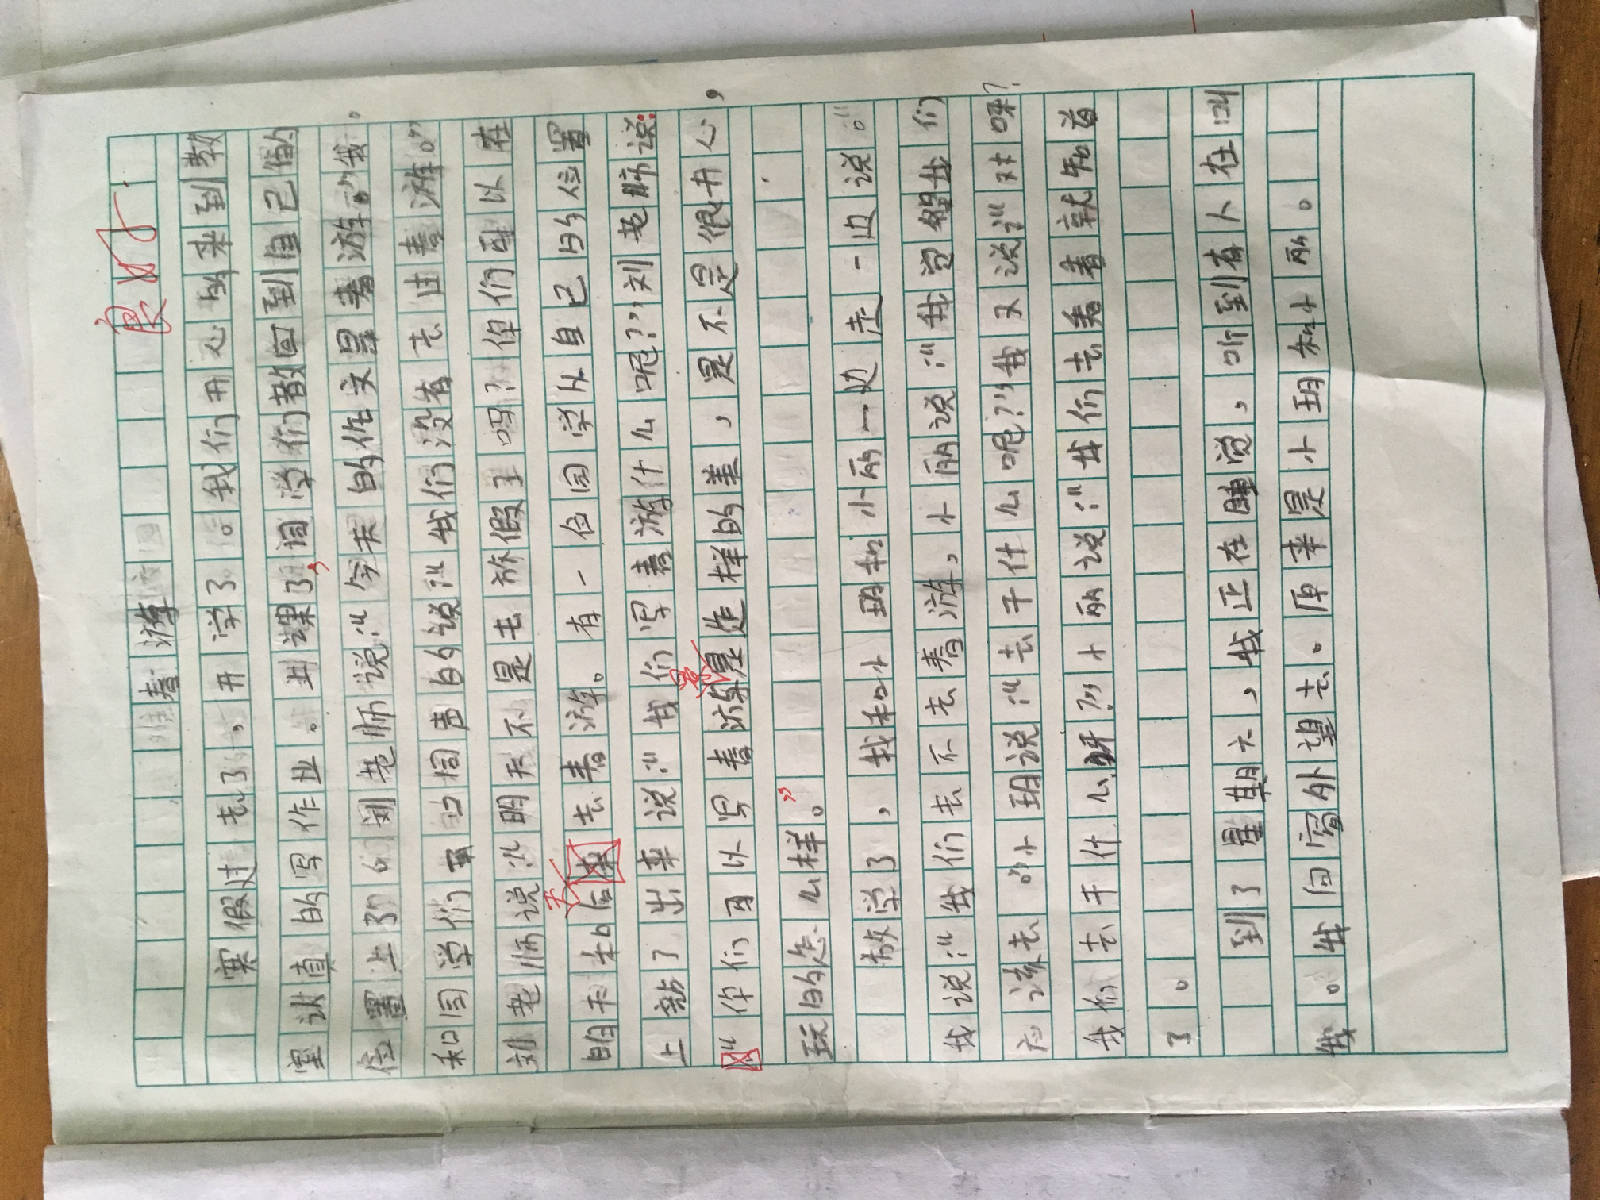 春游
良好
寒假过去了，开学了。我们开心的来到教
室认真的写作业。上课了，同学们都回到自己的
位置上了。刘老师说：“今天的作文是春游。”我
和同学们不约同图的说：“我们没有去过春游。”
刘老师说：“明天不是去放假了吗？你们可以在
明天和后天去春游。有一名同学从自己的位置
上站了出来说：“我们写春游什么呢？”刘老师说：
“你们可以写春游是怎样的美，是不是很开心，
玩的怎么样。”
放学了，我和小玥和小丽一边走一边说。“
我说：“我们去不去春游，小丽说：“我觉得我们
应该去。”小玥说：“去干什么呢？”我又说：“对呀？
我们去干什么呀？”小丽说：“我们去看看就知道
了。
到了星期六，我正在睡觉，听到有人在叫
我。我向窗外望去。原来是小玥和小丽。